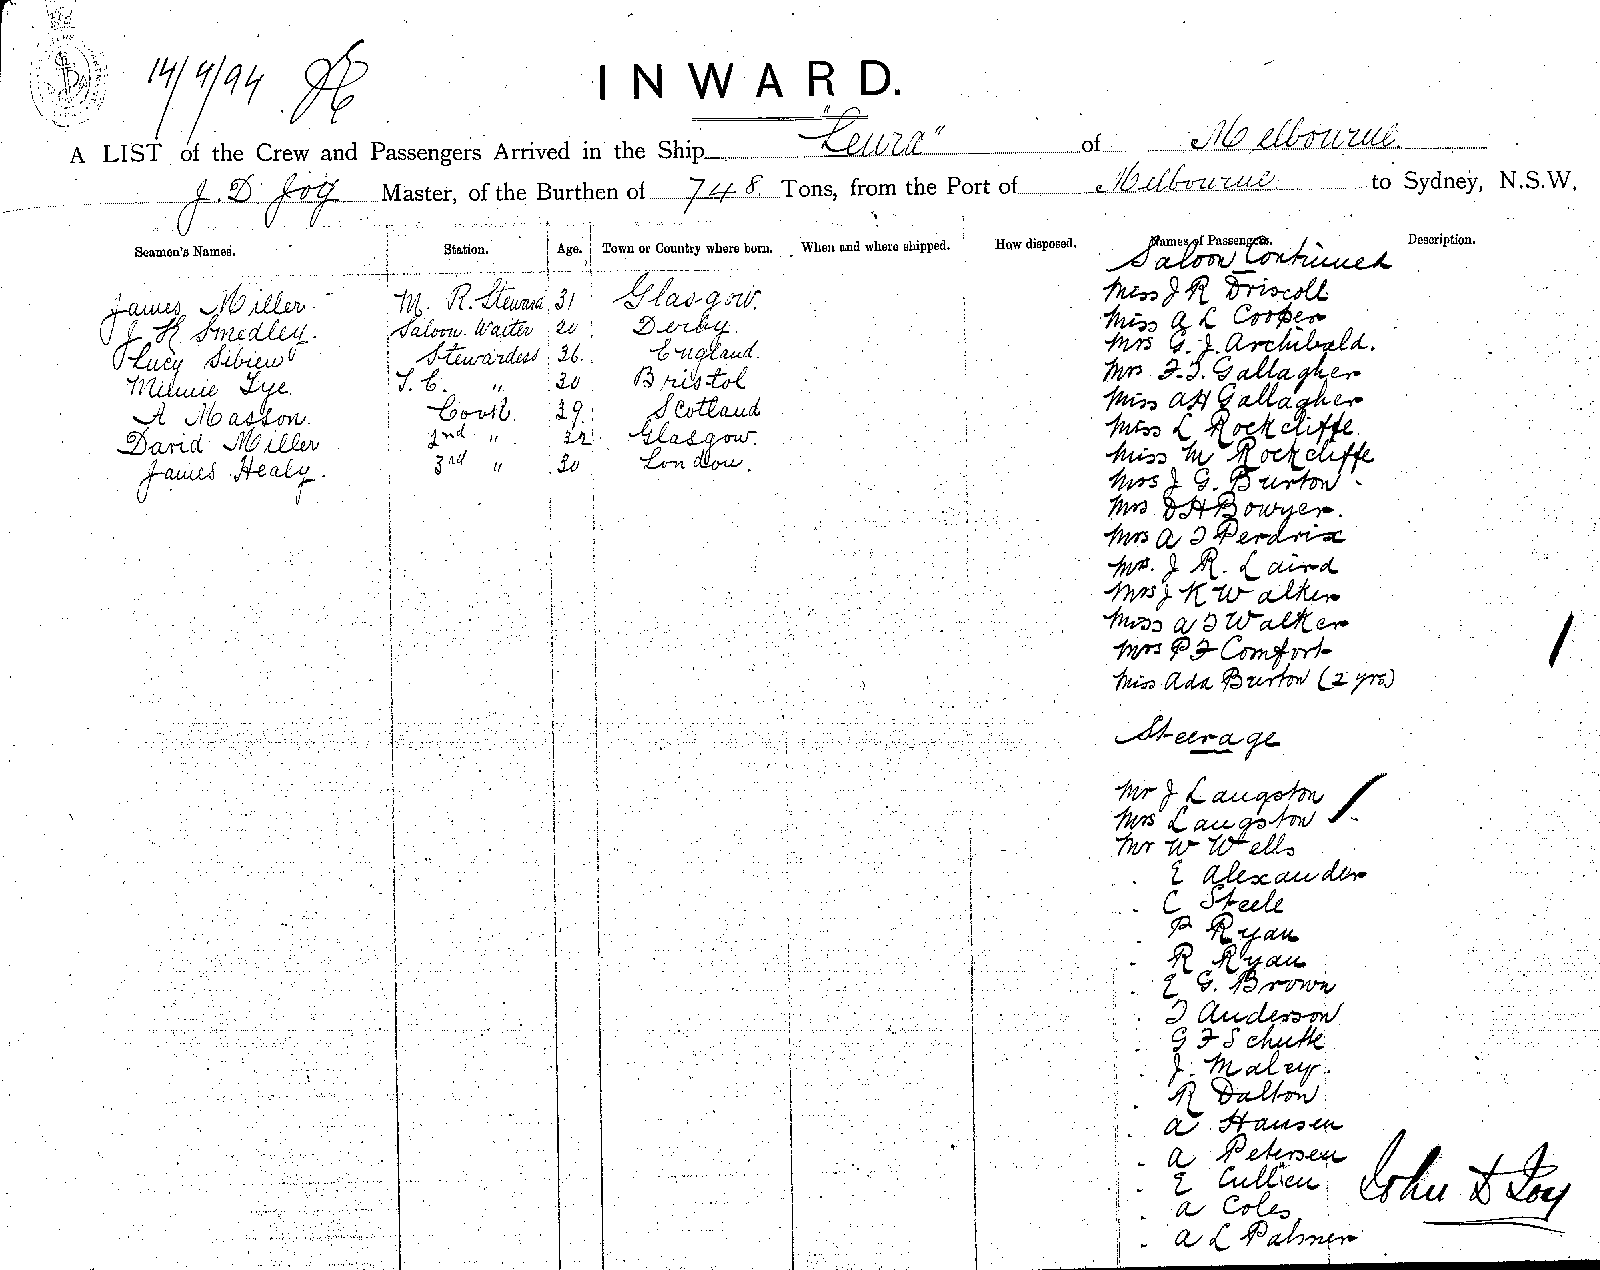 14/4/94
INWARD.
A LIST of the Crew and Passengers Arrived in the Ship "Leura" of Melbourne.
J. D. Joy Master, of the Burthen of 748 Tons, from the Port of Melbourne to Sydney, N.S.W.
Seamen's Names. Station. Age. Town or Country where born. When and where shipped. How disposed. Names of Passengers. Description.
Saloon Continued
James Miller M. R. Steward 31 Glasgow.
J H Smedley. Saloon Waiter 20 Derby.
Lucy Stewardess 36. England.
Minnie Tye S. C. " 30 Bristol
A Masson. Cook 29. Scotland
David Miller 2nd " 32 Glasgow.
James Healy. 3rd " 30 London.
Miss J R Driscoll
Miss A L Cooper
Mrs G. J. Archibald.
Mrs F. J. Gallagher
Miss A H Gallagher
Miss L Rockcliffe
Miss M Rockcliffe
Mrs J G. Burton
Mrs D H Bowyer.
Mrs A J Perdrix
Mrs. J R. Laird
Mrs J K Walker
Miss A J Walker
Mrs P F Comfort
Miss Ada Burton (2 yrs)
Steerage
Mr J Langston
Mrs Langston
Mr W Wells
. E Alexander
. C Steele
. P Ryan
. R Ryan
. E G. Brown
. J Anderson
. G F Schutte
. J. Maley.
. R Dalton
. A Hansen
. A Petersen
. E Cullien
. A Coles
. A L Palmer
John D Joy